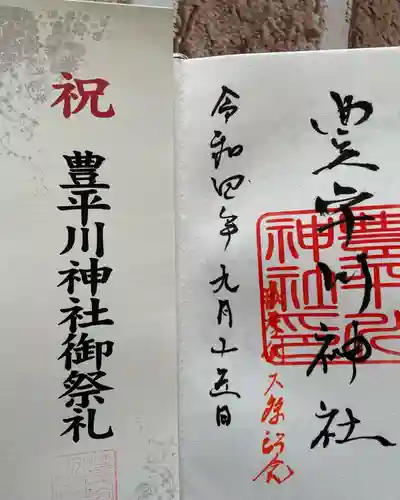 祝
豊平川神社御祭礼
豊平川神社
令和四年九月十五日
大祭記念
豊平川神社印